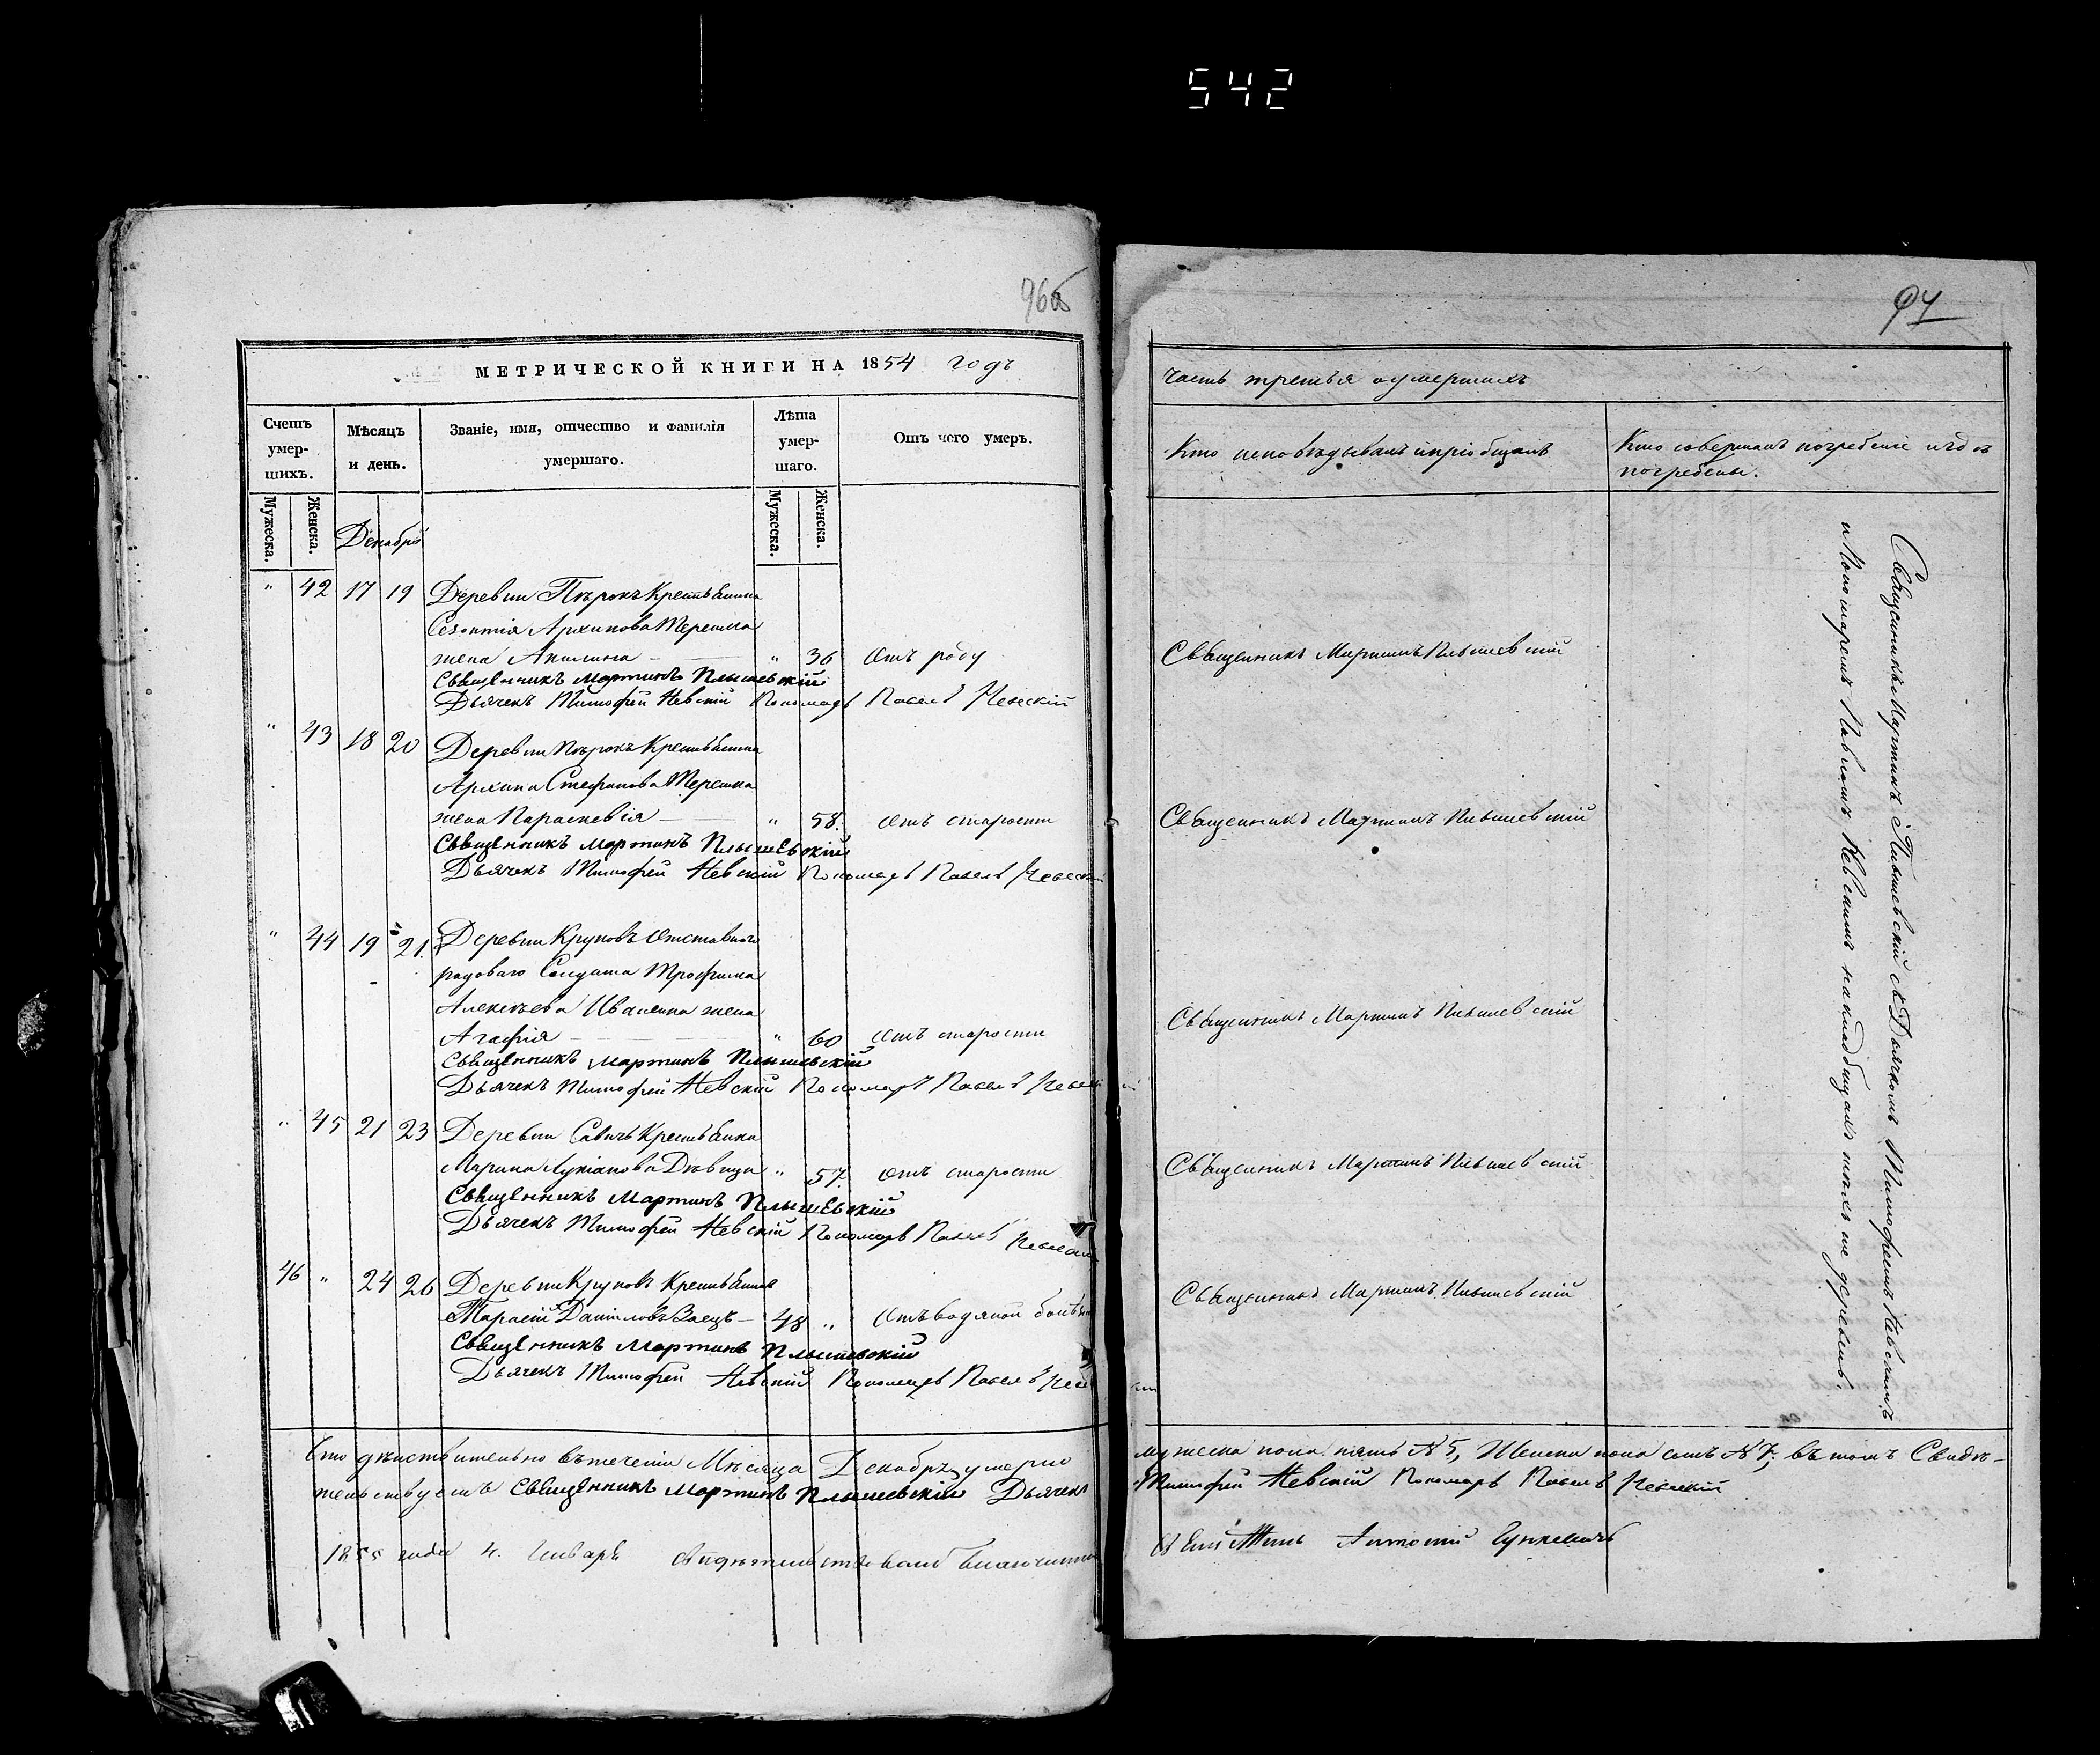 542
96об
МЕТРИЧЕСКОЙ КНИГИ НА 1854 годъ
Счетъ умер-шихъ.
Мѣсяцъ и день.
Званіе, имя, отчество и фамилія умершаго.
Лѣта умер-шаго.
Отъ чего умеръ.
Мужеска.
Женска.
Декабрь
Мужеска.
Женска.
" 42 17 19 Деревни Крестьянина
Архипова Терешка
жена Акилина " 36 Отъ роду
Священникъ Мартинъ Плышевскій
Дьячекъ Тимофей Невскій Пономарь Павелъ Невскій
" 43 18 20 Деревни Крестьянина
Архипа Стефанова Терешка
жена Параскевія " 58. Отъ старости
Священникъ Мартинъ Плышевскій
Дьячекъ Тимофей Невскій Пономарь Павелъ
" 44 19 21. Деревни Круповъ Отставнаго
рядоваго Солдата Трофима
Алексѣева жена
Агафія " 60 Отъ старости
Священникъ Мартинъ Плышевскій
Дьячекъ Тимофей Невскій Пономарь Павелъ
" 45 21 23 Деревни Савичъ Крестьянка
Марина Лукіанова Дѣвица " 57. Отъ старости
Священникъ Мартинъ Плышевскій
Дьячекъ Тимофей Невскій Пономарь Павелъ
46 " 24 26 Деревни Круповъ Крестьянинъ
Тарасій Даніиловъ Заецъ 48 " Отъ водяной
Священникъ Мартинъ Плышевскій
Дьячекъ Тимофей Невскій Пономарь Павелъ
Что дѣйствительно въ теченіи Мѣсяца Декабря умерло
тельствуемъ Священникъ Мартинъ Плышевскій Дьячекъ
1855 года 4. Января
94
Часть третья о умершихъ
Кто исповѣдывалъ и пріобщалъ
Кто совершалъ погребеніе и гдѣ погребены.
Священникъ Мартинъ Плышевскій
Священникъ Мартинъ Плышевскій
Священникъ Мартинъ Плышевскій
Священникъ Мартинъ Плышевскій
Священникъ Мартинъ Плышевскій
Священникъ Мартинъ Плышевскій съ Дьячкомъ Тимофеемъ Невскимъ
и Пономаремъ Павломъ Невскимъ на кладбищахъ тѣхъ же деревень.
мужеска пола пять № 5, Женска пола семь № 7, въ томъ Свидѣ-
Тимофей Невскій Пономарь Павелъ Невскій
Антоній